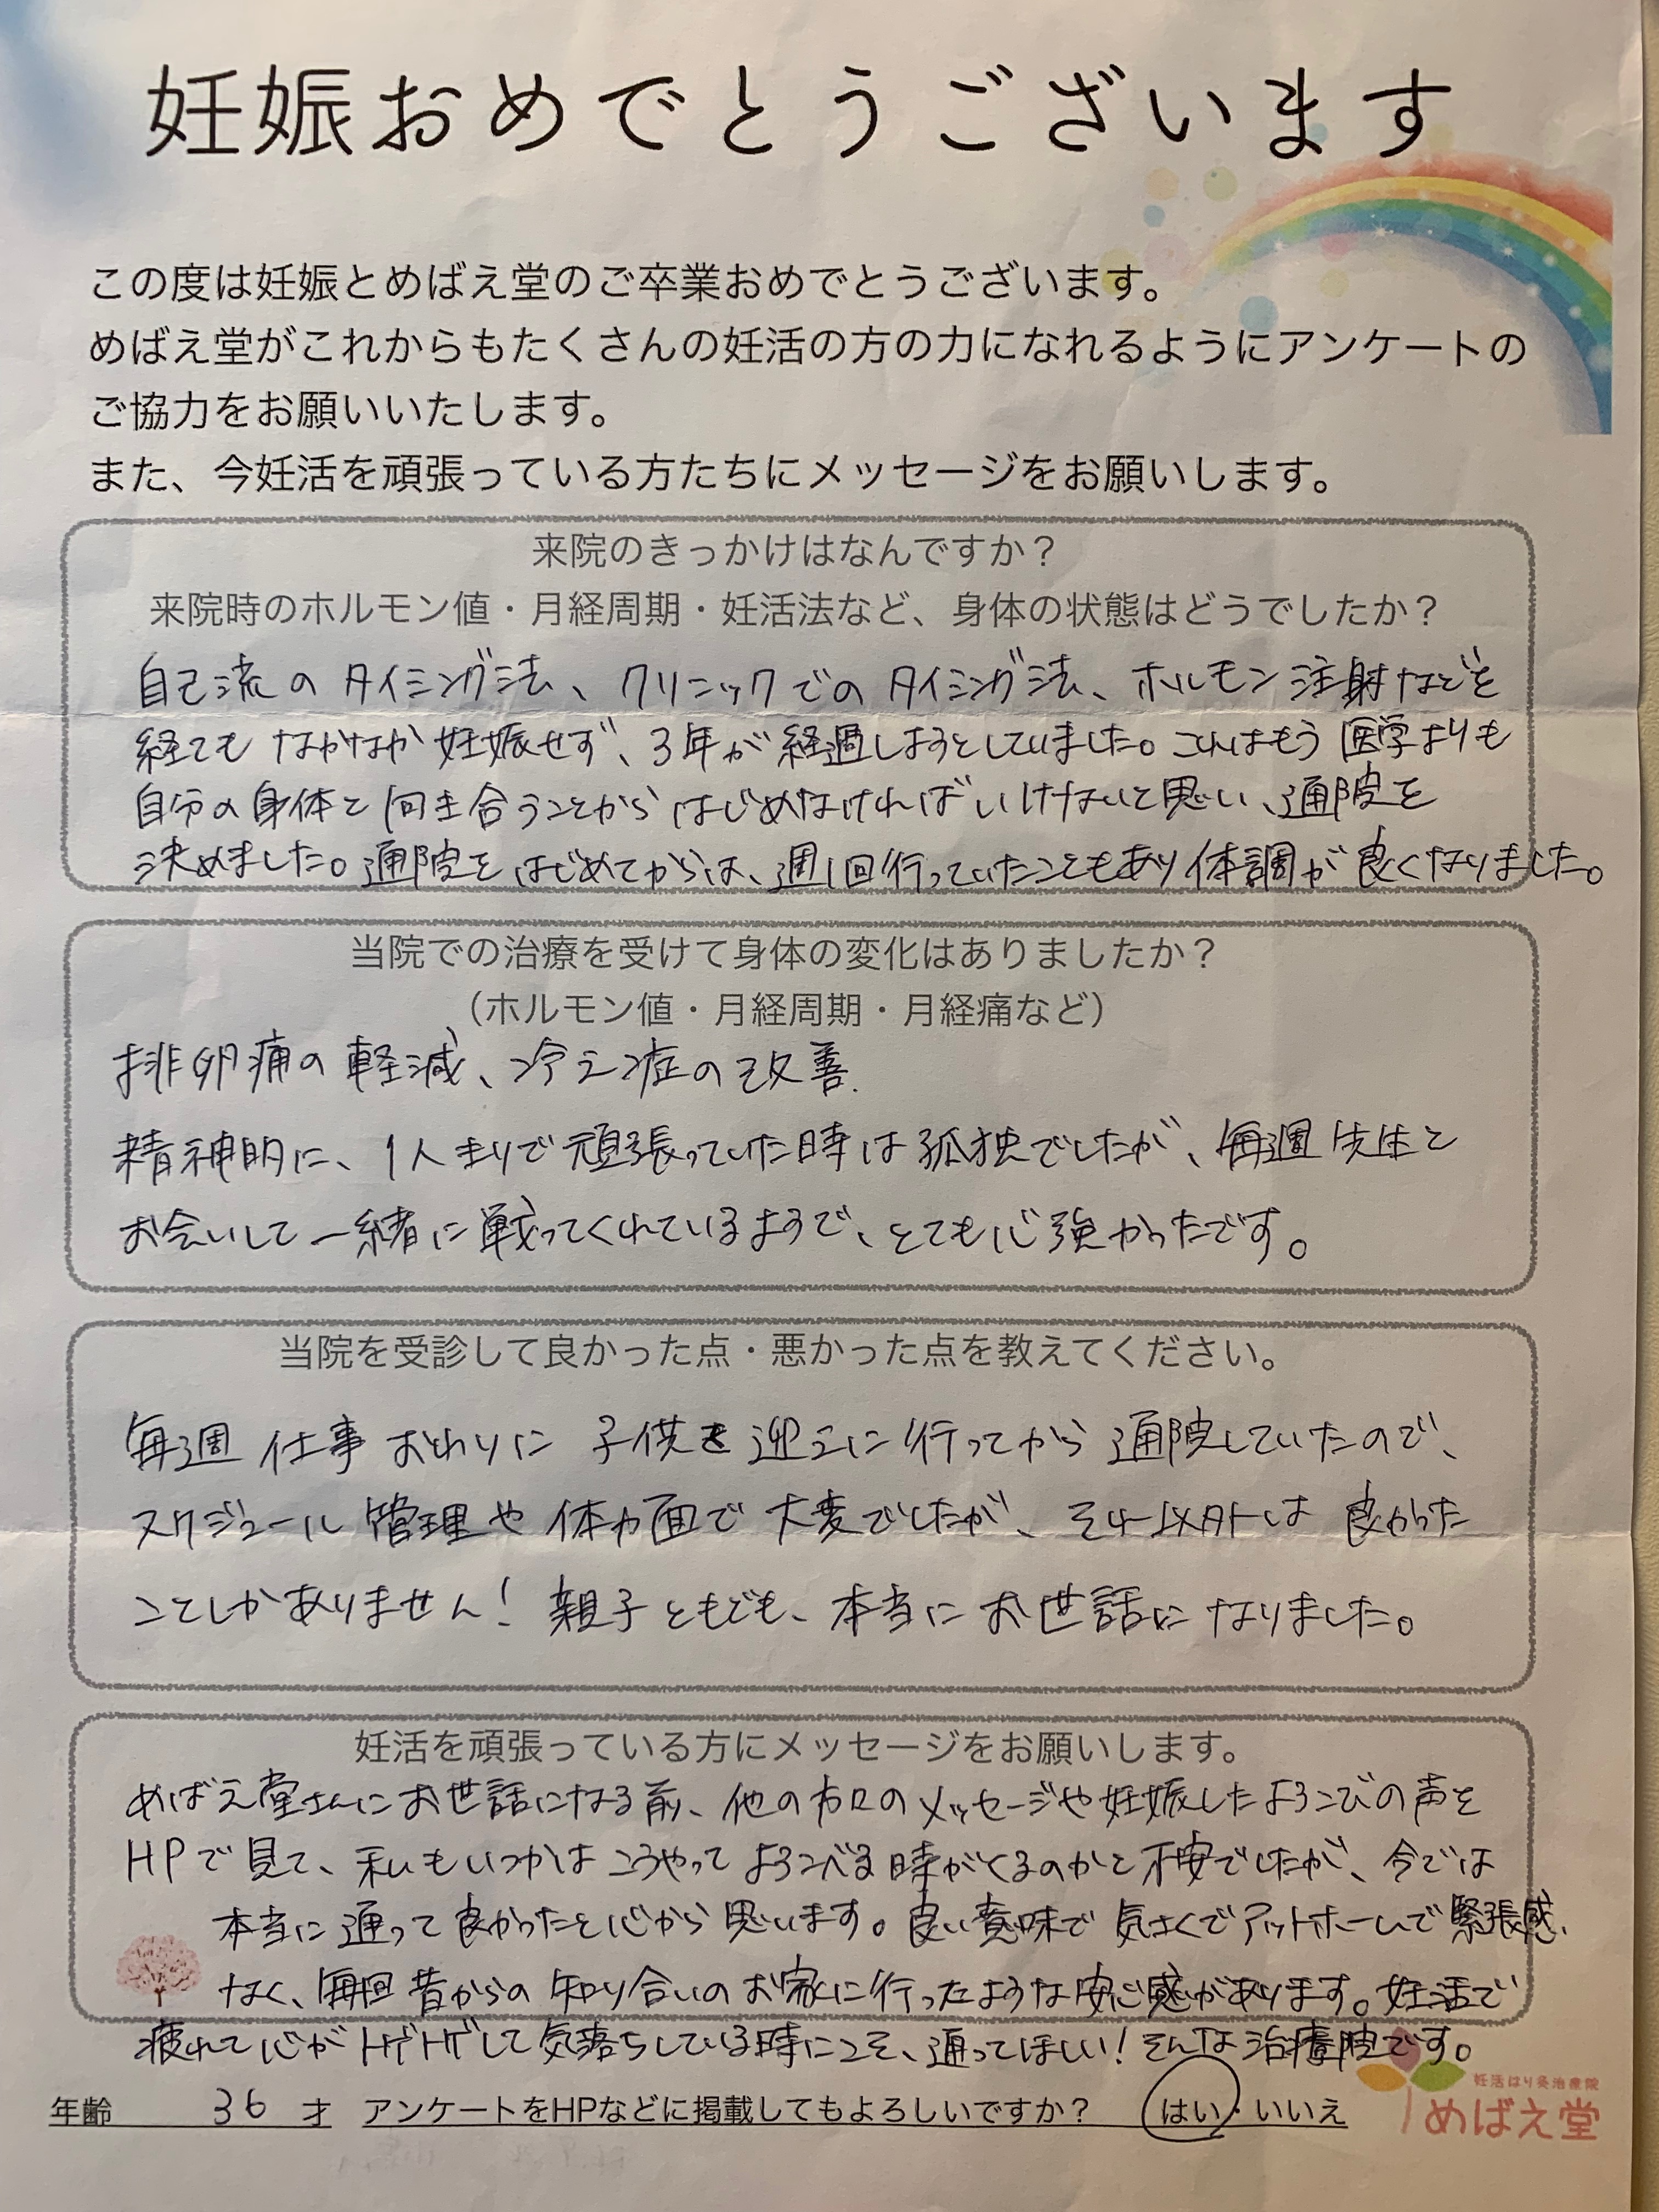 妊娠おめでとうございます
この度は妊娠とめばえ堂のご卒業おめでとうございます。
めばえ堂がこれからもたくさんの妊活の方の力になれるようにアンケートの
ご協力をお願いいたします。
また、今妊活を頑張っている方たちにメッセージをお願いします。
来院のきっかけはなんですか？
来院時のホルモン値・月経周期・妊活法など、身体の状態はどうでしたか？
自己流のタイミング法、クリニックでのタイミング法、ホルモン注射などを
経てもなかなか妊娠せず、3年が経過しようとしていました。これはもう医学よりも
自分の身体と向き合うことからはじめなければいけないと思い、通院を
決めました。通院をはじめてからは、週1回行っていたこともあり体調が良くなりました。
当院での治療を受けて身体の変化はありましたか？
（ホルモン値・月経周期・月経痛など）
排卵痛の軽減、冷え症の改善.
精神的に、1人きりで頑張っていた時は孤独でしたが、毎週先生と
お会いして一緒に戦ってくれているようで、とても心強かったです。
当院を受診して良かった点・悪かった点を教えてください。
毎週仕事おわりに子供を迎えに行ってから通院していたので、
スケジュール管理や体力面で大変でしたが、それ以外は良かった
ことしかありません！親子ともども、本当にお世話になりました。
妊活を頑張っている方にメッセージをお願いします。
めばえ堂さんにお世話になる前、他の方々のメッセージや妊娠したよろこびの声を
HPで見て、私もいつかはこうやってよろこべる時がくるのかと不安でしたが、今では
本当に通って良かったと心から思います。良い意味で気さくでアットホームで緊張感
なく、毎回昔からの知り合いのお家に行ったような安心感があります。妊活で
疲れて心がトゲトゲして気落ちしている時にこそ、通ってほしい！そんな治療院です。
年齢 36 才 アンケートをHPなどに掲載してもよろしいですか？ はい・いいえ
妊活はり灸治療院
めばえ堂